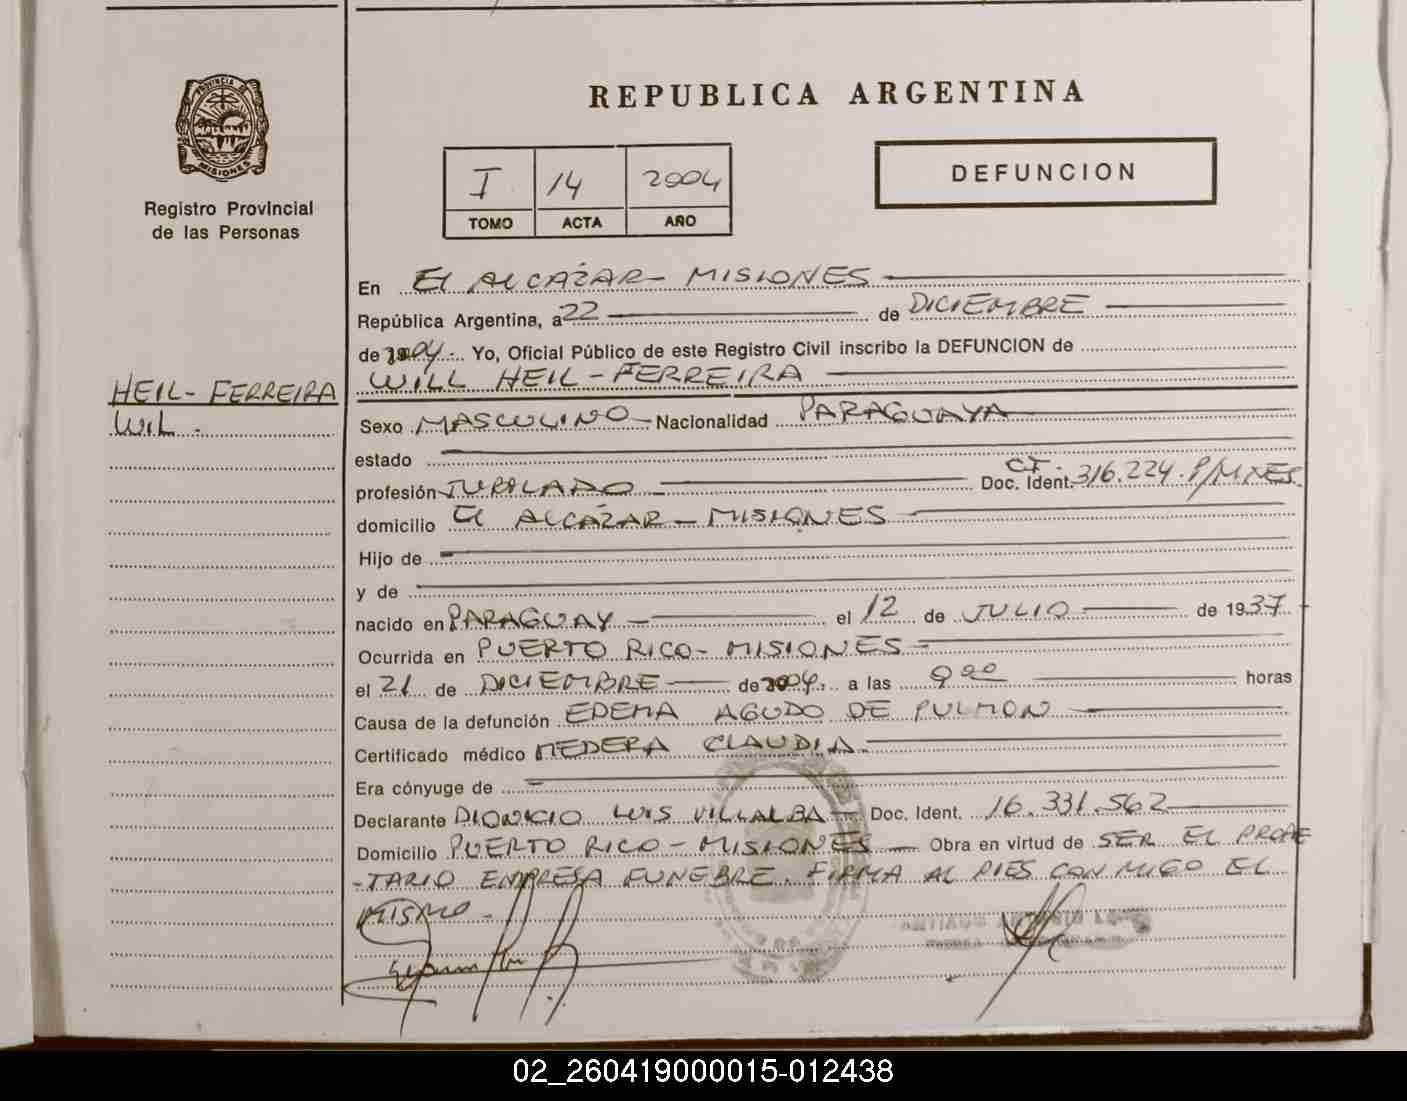 REPUBLICA ARGENTINA
PROVINCIA DE
MISIONES
Registro Provincial
de las Personas
I 14 2004
TOMO ACTA AÑO
DEFUNCION
En El ALCAZAR - MISIONES
República Argentina, a 22 de DICIEMBRE
de 2004. Yo, Oficial Público de este Registro Civil inscribo la DEFUNCION de
WILL HEIL - FERREIRA
HEIL - FERREIRA
WIL -
Sexo MASCULINO Nacionalidad PARAGUAYA
estado
profesión JUBILADO C.I. Doc. Ident. 316.224. P/MNES.
domicilio El ALCAZAR - MISIONES
Hijo de
y de
nacido en PARAGUAY el 12 de JULIO de 1937
Ocurrida en PUERTO RICO - MISIONES
el 21 de DICIEMBRE de 2004. a las 9 00 horas
Causa de la defunción EDEMA AGUDO DE PULMON
Certificado médico MEDERA CLAUDIA
Era cónyuge de
Declarante DIONICIO LUIS VILLALBA Doc. Ident. 16.331.562
Domicilio PUERTO RICO - MISIONES Obra en virtud de SER EL PROPIE
-TARIO EMPRESA FUNEBRE. FIRMA AL PIES CONMIGO EL
MISMO -
02_260419000015-012438